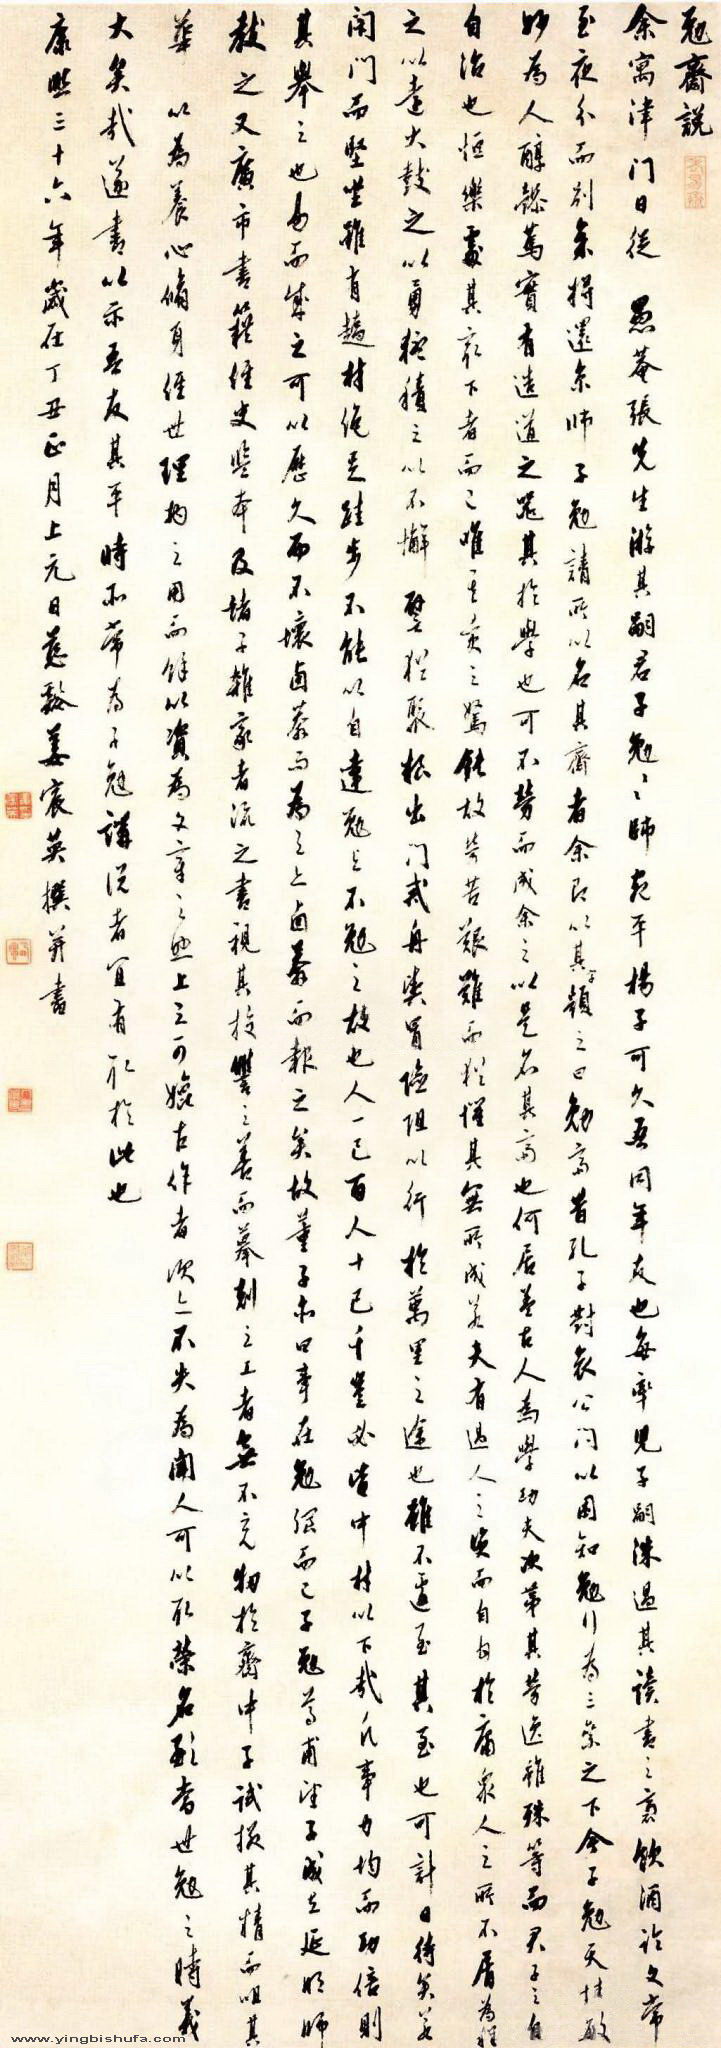 勉齋說
余寓津门日從 愚菴張先生游其嗣君子勉之師宛平楊子可久吾同年友也每率見子嗣洙過其讀書之裏飲酒論文常
至夜分而別余將還京師子勉請所以名其齋者余即以其字額之曰勉齋昔孔子對哀公问以困知勉行為三等之下今子勉天性敏
妙為人醇謹篤實有造道之器其於學也可不勞而成余之以是名其齋也何居蓋古人為學功夫次第其勞逸雖殊等而君子之自
自治也恒樂處其最下者而已唯其資之駑鈍故茹苦艱難而猶懼其無所成若夫有過人之資而自甘於庸衆人之所不屑為程
之以遠大鼓之以勇猛積之以不懈 譬猶聚糧出门戒舟楫冒險阻以行於萬里之途也雖不遽至其至也可計日待矣若
閉門而堅坐雖有趫材絶足跬步不能以自達勉与不勉之故也人一己百人十己千豈必皆中材以下哉凡事力均而功倍則
其舉之也易而成之可以歷久而不壞鹵莽而為之亦鹵莽而報之矣故董子亦曰事在勉强而已子勉尊甫望子成立延明師
教之又廣市書籍經史監本及諸子雜家者流之書視其校讐之善而摹刻之工者無不充牣於齋中子試掇其精而咀其
華 以為養心脩身經世理物之用而餘以資為文章之煥上之可媲古作者次亦不失為聞人可以取榮名於當世勉之時義
大矣哉遂書以示吾友其平時所常為子勉講说者宜有取於此也
康熙三十六年歲在丁丑正月上元日慈谿姜宸英撰并書
www.yingbishufa.com